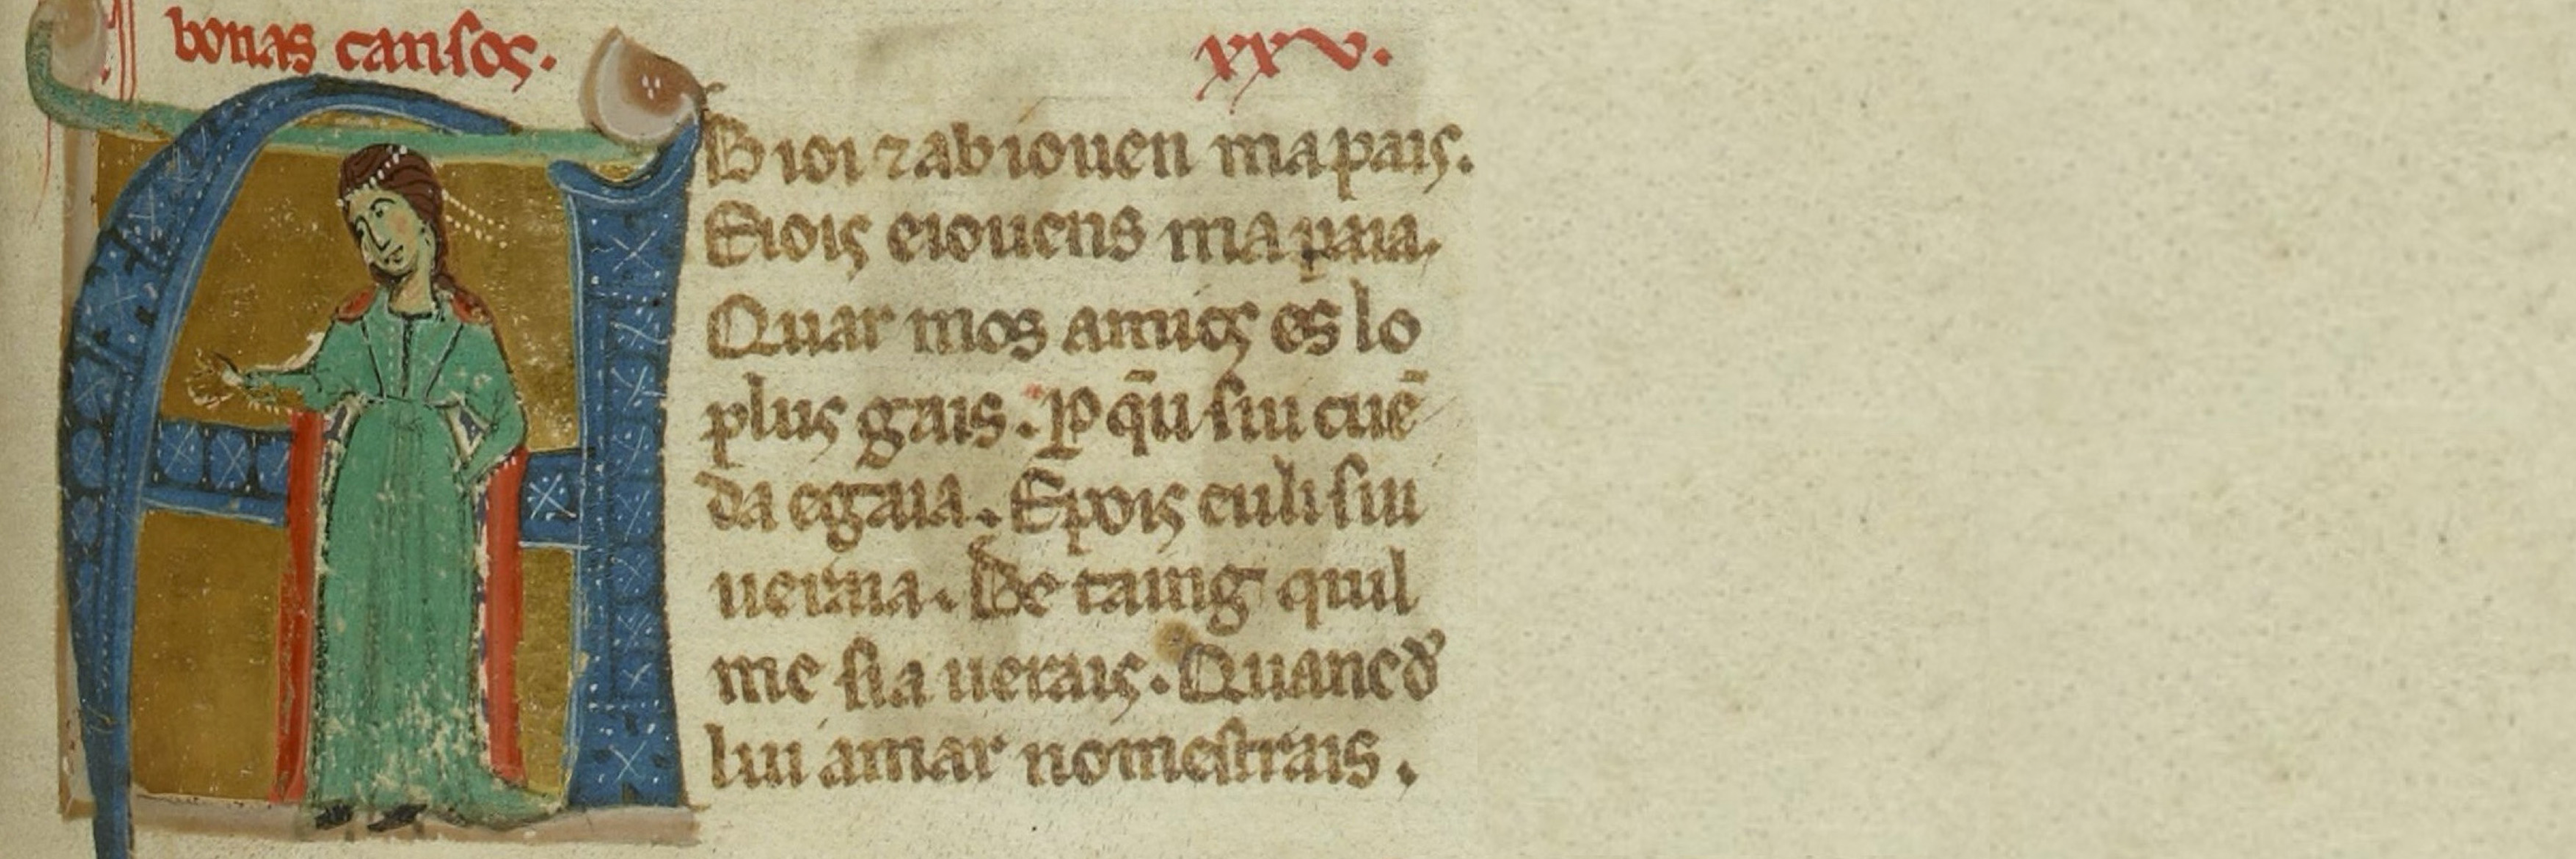 bonas cansos.
xxv.
B ioi ⁊ab iouen mapais.
Eiois eiouens ma paia.
Quar mos amics es lo
plus gais. ꝑ q̄u siu cuē
da egaia. E pois eu li siu
ueraia. Be taing quil
me sia uerais. Quanc d᷑
lui amar nomestrais.